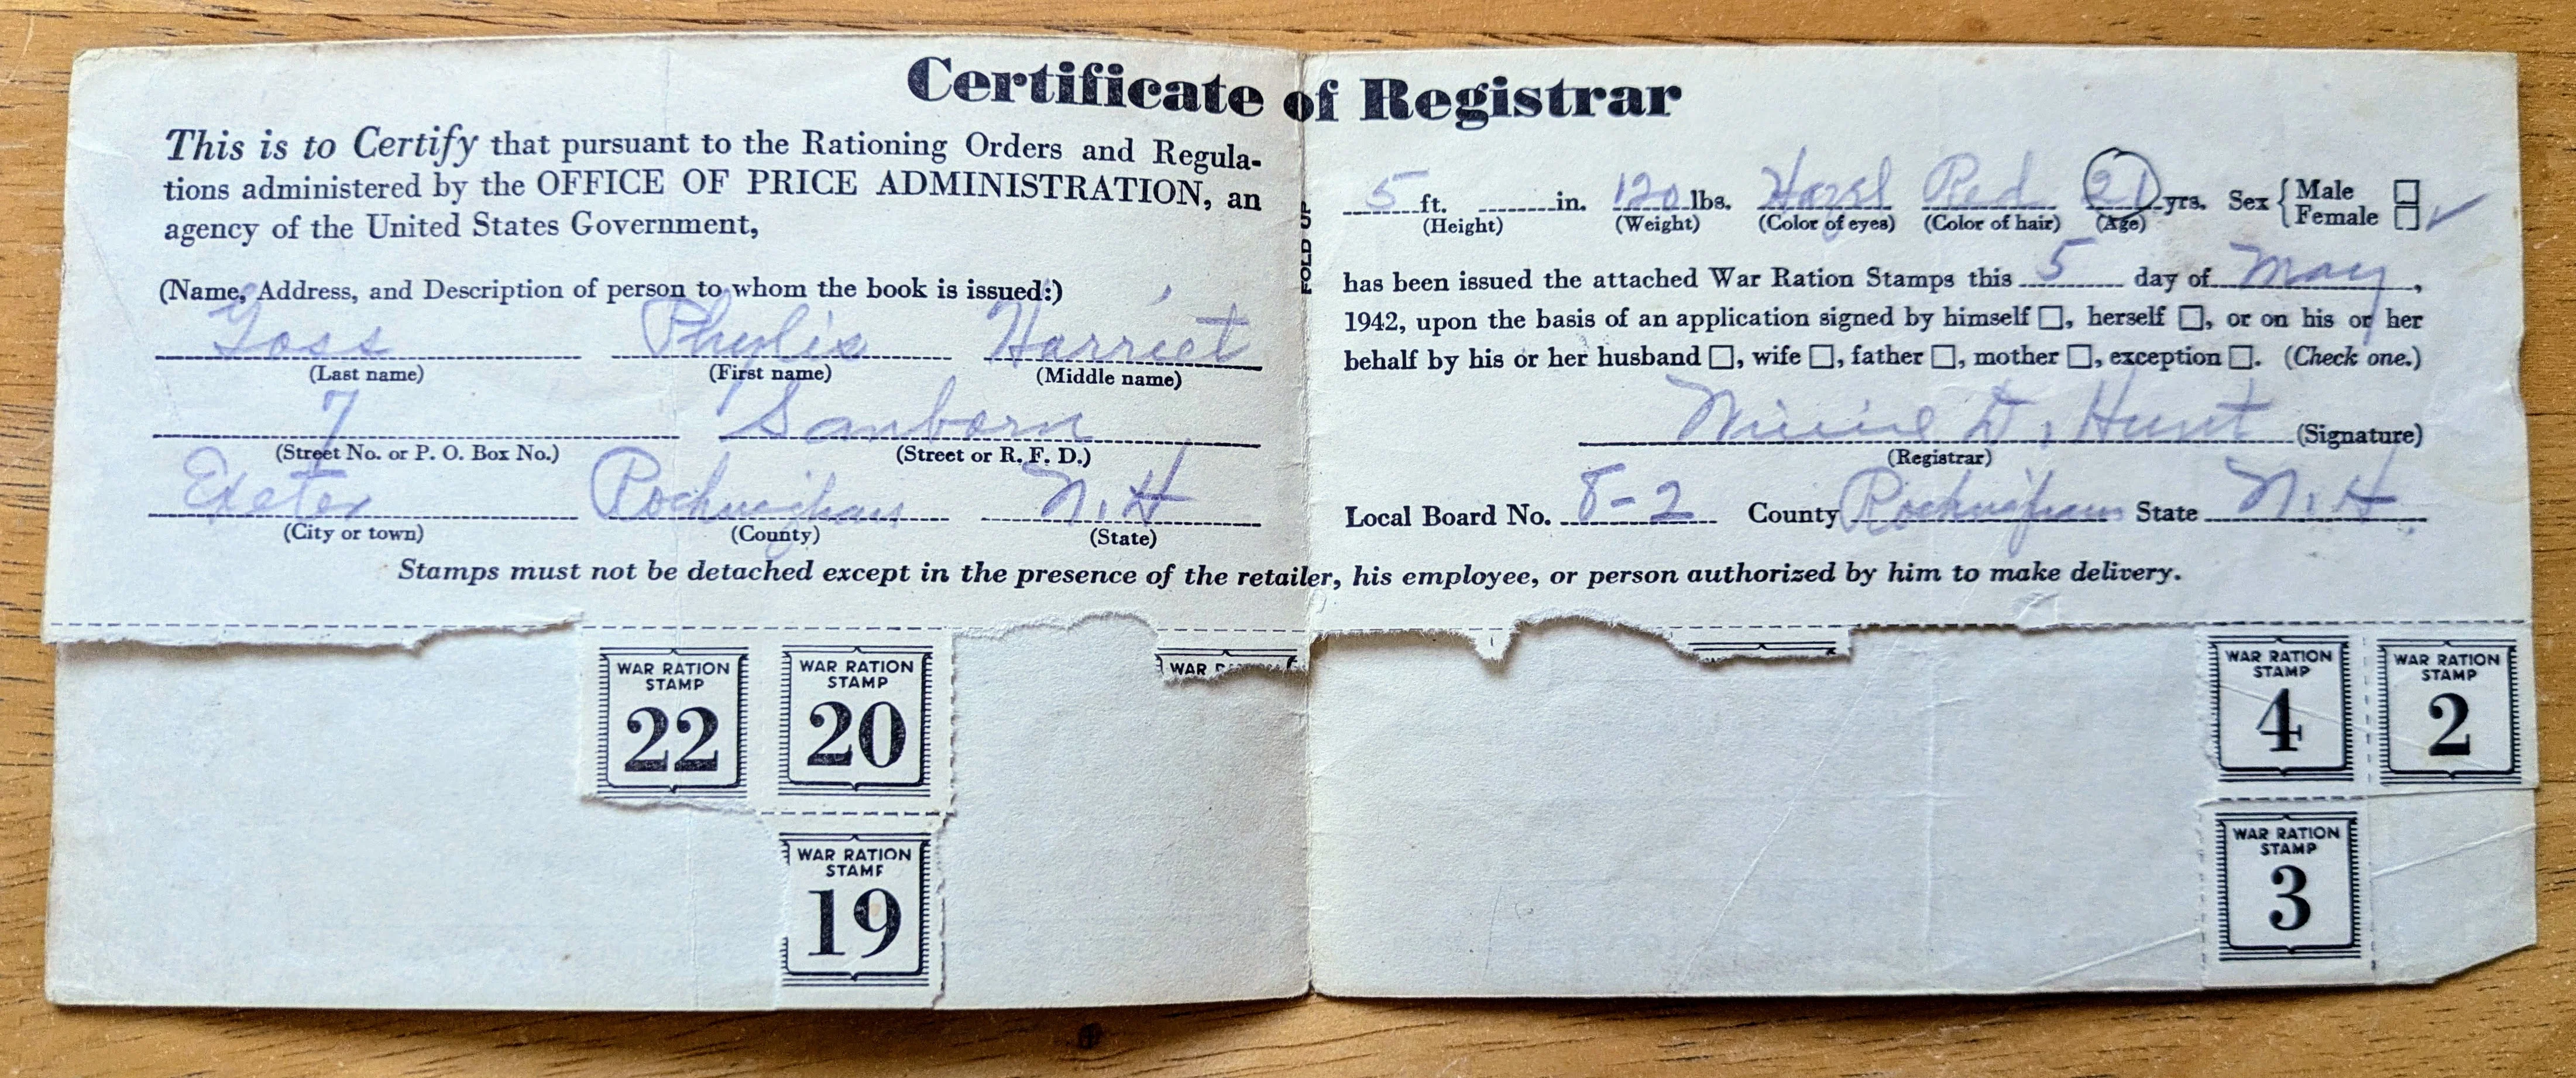 Certificate of Registrar
This is to Certify that pursuant to the Rationing Orders and Regula-
tions administered by the OFFICE OF PRICE ADMINISTRATION, an
agency of the United States Government,
(Name, Address, and Description of person to whom the book is issued:)
Goss Phylis Harriet
(Last name) (First name) (Middle name)
7 Sanborn
(Street No. or P. O. Box No.) (Street or R. F. D.)
Exeter Rockingham N.H
(City or town) (County) (State)
FOLD UP
5 ft. in. 120 lbs. Hazel Red 21 yrs. Sex { Male
Female
(Height) (Weight) (Color of eyes) (Color of hair) (Age)
has been issued the attached War Ration Stamps this 5 day of May,
1942, upon the basis of an application signed by himself □, herself □, or on his or her
behalf by his or her husband □, wife □, father □, mother □, exception □. (Check one.)
Minnie D. Hunt (Signature)
(Registrar)
Local Board No. 8-2 County Rockingham State N.H.
Stamps must not be detached except in the presence of the retailer, his employee, or person authorized by him to make delivery.
WAR RATION
STAMP
22
WAR RATION
STAMP
20
WAR
WAR RATION
STAMP
4
WAR RATION
STAMP
2
WAR RATION
STAMP
19
WAR RATION
STAMP
3